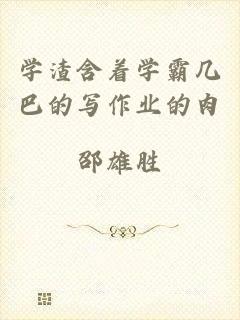 学渣含着学霸几
巴的写作业的肉
邵雄胜